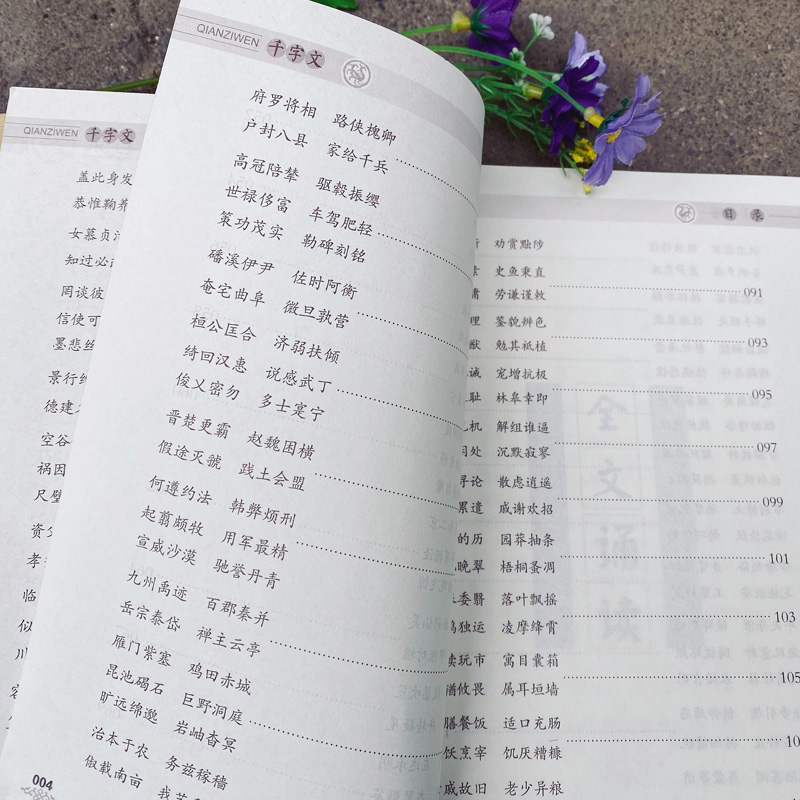 QIANZIWEN 千字文
盖此身发
恭惟鞠养
女慕贞
知过必
罔谈彼
信使可
墨悲丝
景行维
德建
空谷
祸因
尺璧
资
孝
临
似
川
QIANZIWEN 千字文
府罗将相 路侠槐卿
户封八县 家给千兵
高冠陪辇 驱毂振缨
世禄侈富 车驾肥轻
策功茂实 勒碑刻铭
磻溪伊尹 佐时阿衡
奄宅曲阜 微旦孰营
桓公匡合 济弱扶倾
绮回汉惠 说感武丁
俊乂密勿 多士寔宁
晋楚更霸 赵魏困横
假途灭虢 践土会盟
何遵约法 韩弊烦刑
起翦颇牧 用军最精
宣威沙漠 驰誉丹青
九州禹迹 百郡秦并
岳宗泰岱 禅主云亭
雁门紫塞 鸡田赤城
昆池碣石 巨野洞庭
旷远绵邈 岩岫杳冥
治本于农 务兹稼穑
俶载南亩 我
004
目录
劝赏黜陟
史鱼秉直 091
庸 劳谦谨敕
理 鉴貌辨色
猷 勉其祗植 093
诫 宠增抗极
耻 林皋幸即 095
机 解组谁逼
处 沉默寂寥 097
寻论 散虑逍遥
累遣 戚谢欢招 099
的历 园莽抽条
晚翠 梧桐蚤凋 101
委翳 落叶飘摇
独运 凌摩绛霄 103
读玩市 寓目囊箱
猶攸畏 属耳垣墙 105
膳餐饭 适口充肠
饫烹宰 饥厌糟糠 10
戚故旧 老少异粮
全文诵读